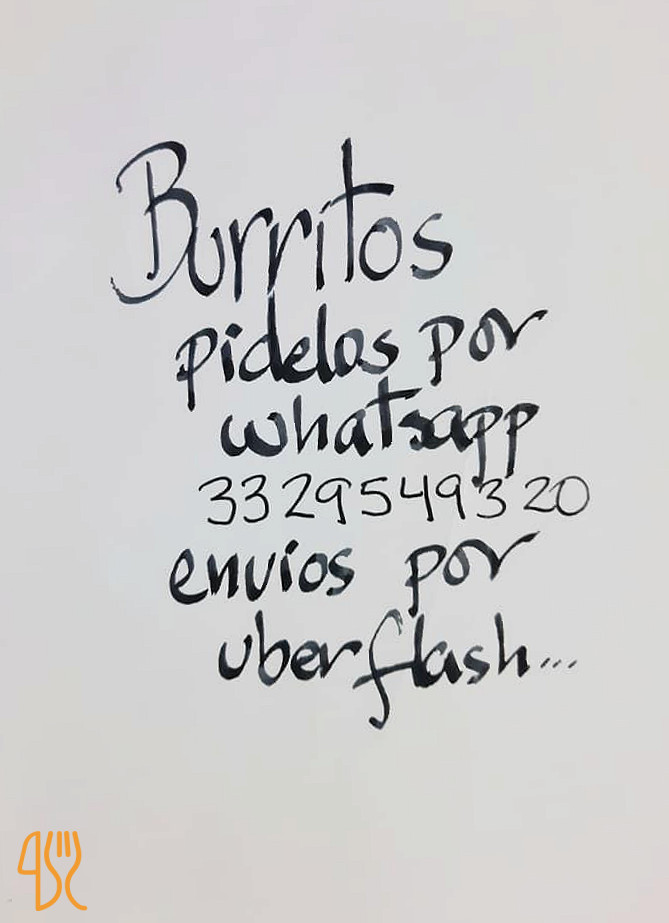 Burritos
pidelos por
whatsapp
3329549320
envios por
uber flash...